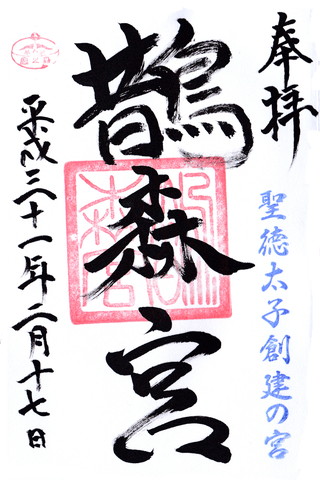 奉拝
聖徳太子創建の宮
鵲森宮
平成三十一年二月十七日